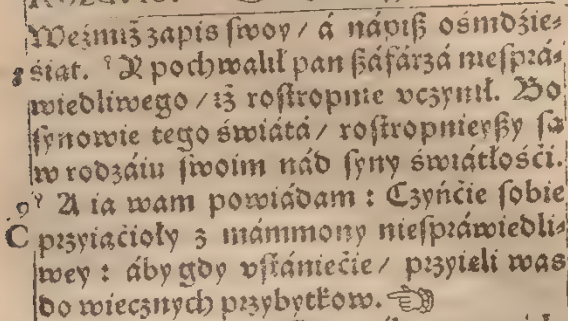 Weźmiż zapis ſwoy / á nápiß ośmdźie⸗
8 śiat. ⁸ A pochwalił pan ßáfárzá nieſprá⸗
wiedliwego / iż roſtropnie vczynił. Bo
ſynowie tego świátá / roſtropnieyßy ſa
w rodzáiu ſwoim nád ſyny świátłośći.
9 ⁹ A ia wam powiádam : Czyńćie ſobie
C przyiaćioły z mámmony nieſpráwiedli⸗
wey : áby gdy vſtániećie / przyięli was
do wiecznych przybytkow. ☜